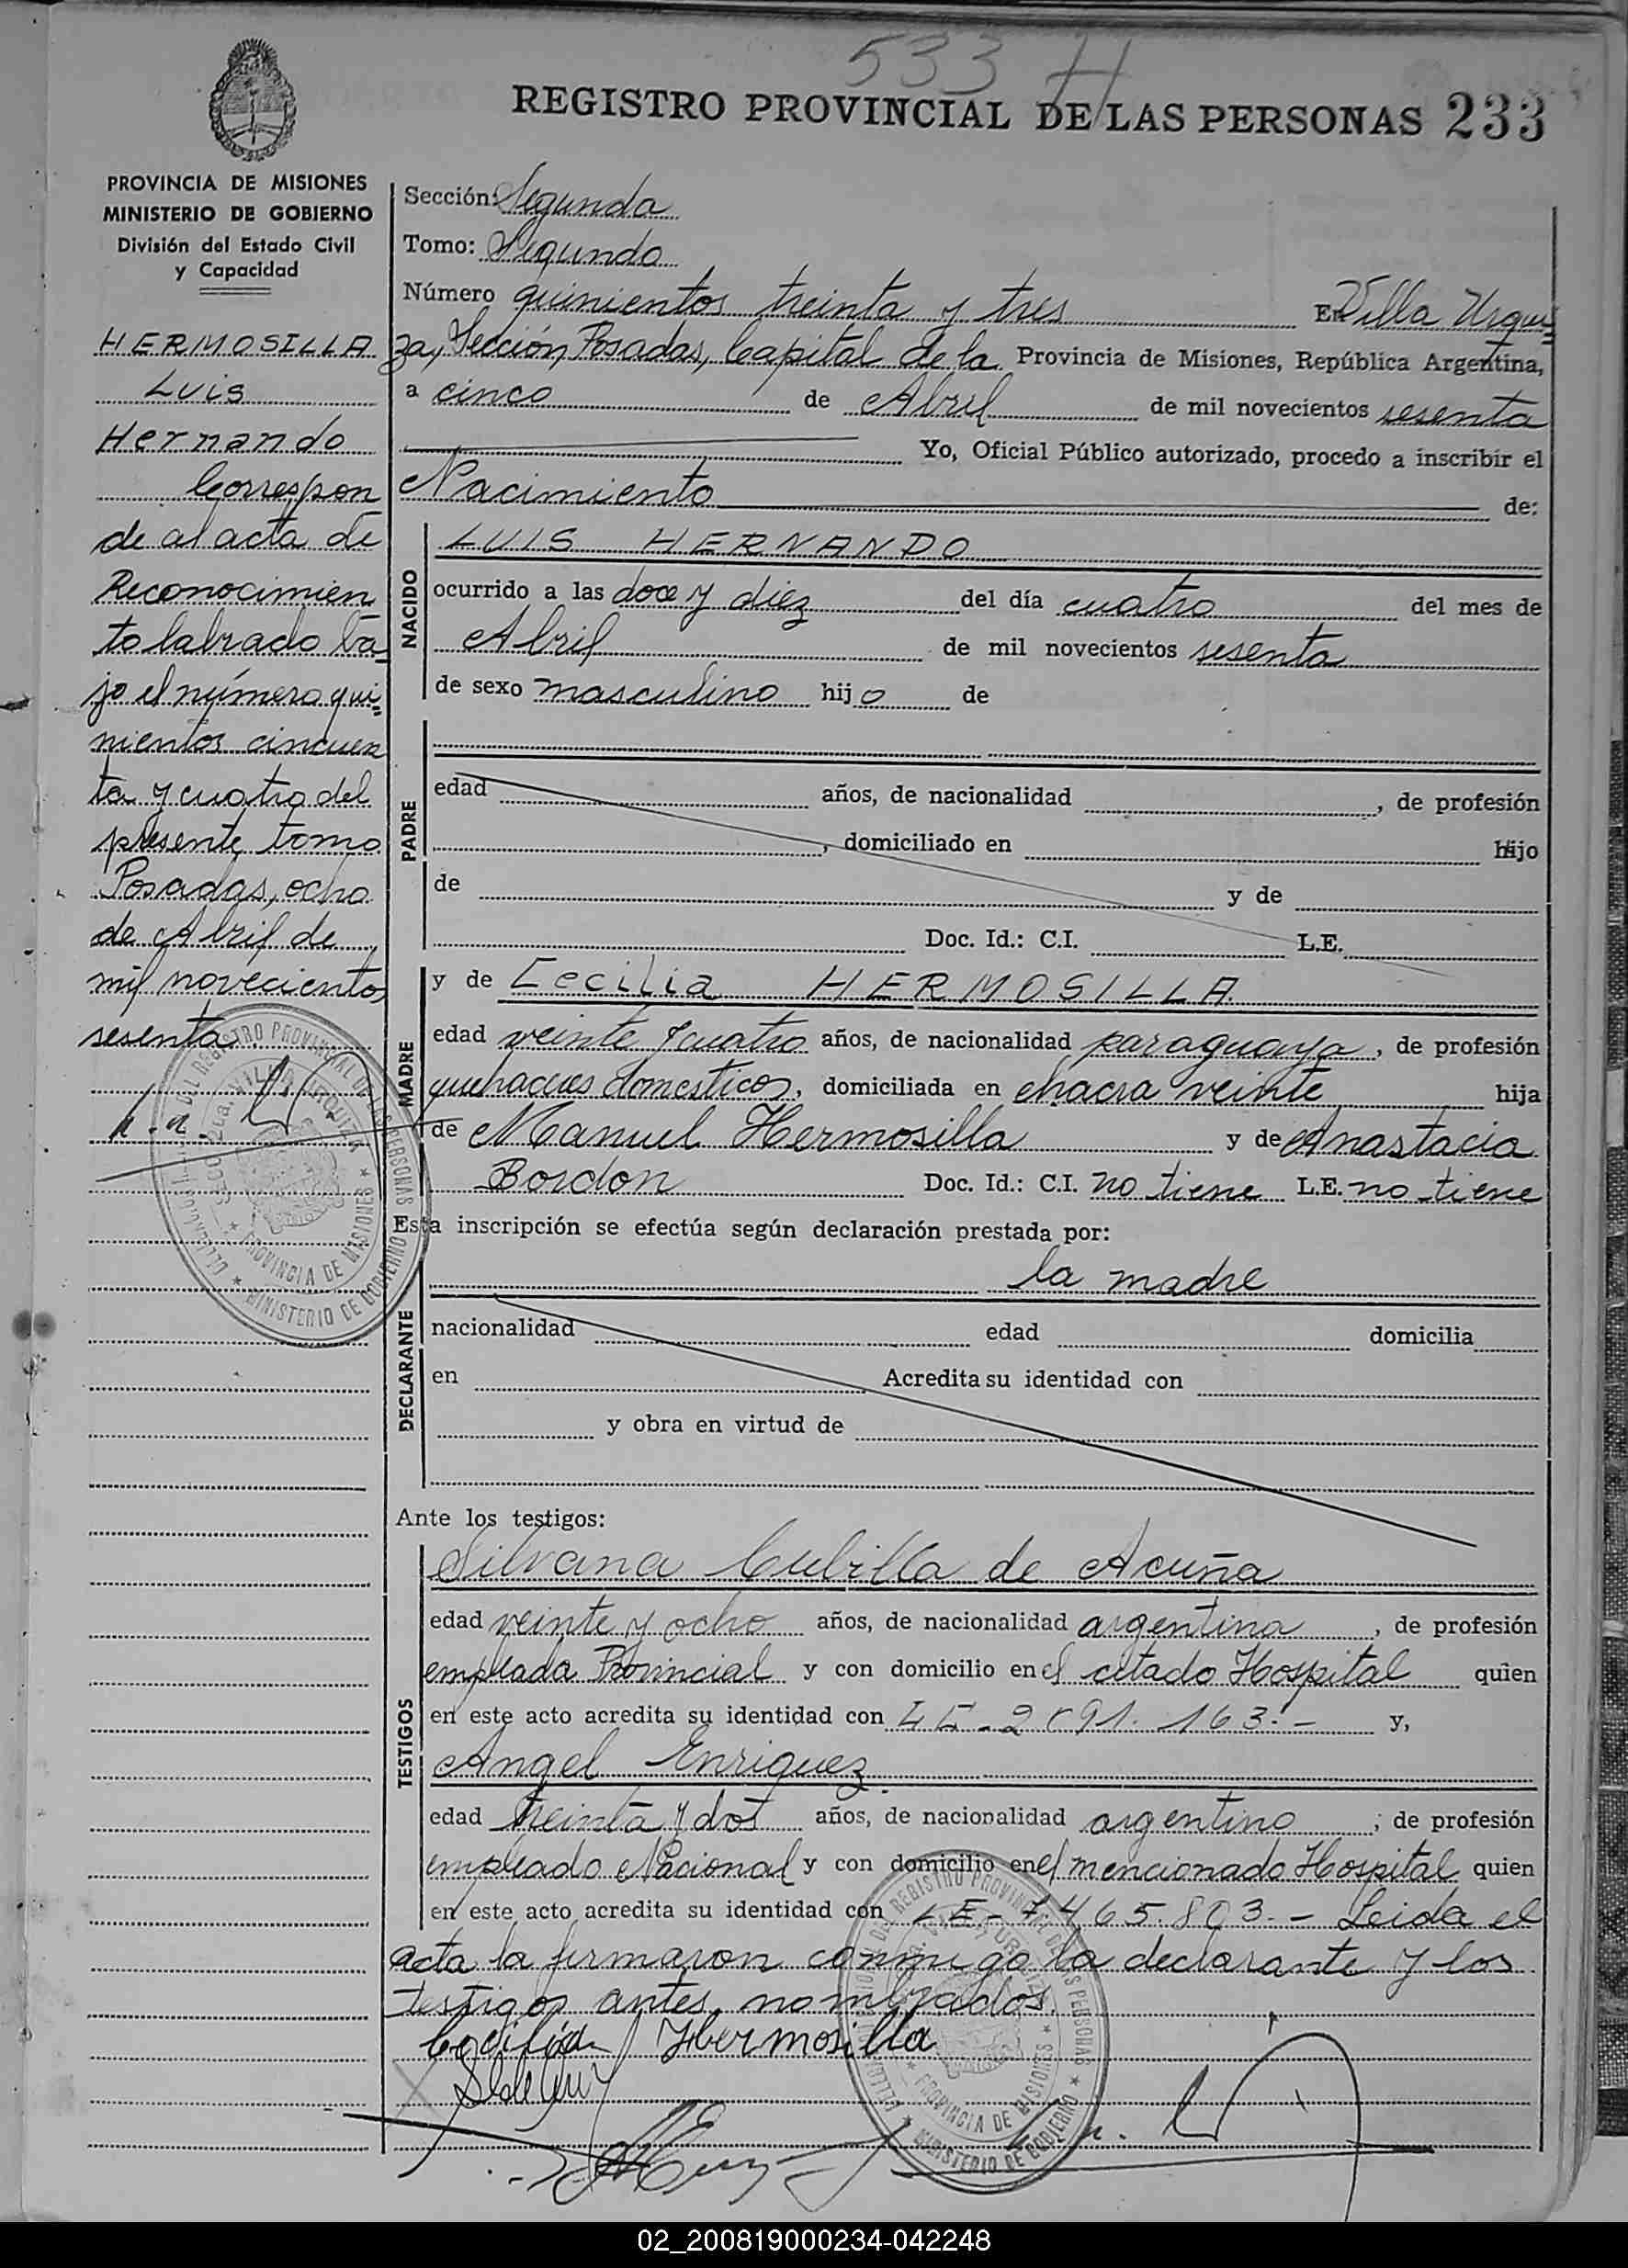 533 H
REGISTRO PROVINCIAL DE LAS PERSONAS 233
PROVINCIA DE MISIONES
MINISTERIO DE GOBIERNO
División del Estado Civil
y Capacidad
HERMOSILLA
Luis
Hernando
Correspon
de al acta de
Reconocimien
to labrado ba
jo el número qui
nientos cincuen
ta y cuatro del
presente tomo
Posadas, ocho
de Abril de
mil novecientos
sesenta
Sección: Segunda
Tomo: Segundo
Número quinientos treinta y tres En Villa Urqui
za, Sección Posadas, Capital de la Provincia de Misiones, República Argentina,
a cinco de Abril de mil novecientos sesenta
Yo, Oficial Público autorizado, procedo a inscribir el
Nacimiento de:
NACIDO
LUIS HERNANDO
ocurrido a las doce y diez del día cuatro del mes de
Abril de mil novecientos sesenta
de sexo masculino hijo de
PADRE
edad años, de nacionalidad , de profesión
, domiciliado en hijo
de y de
Doc. Id.: C.I. L.E.
MADRE
y de Cecilia HERMOSILLA
edad veinte y cuatro años, de nacionalidad paraguaya, de profesión
quehaceres domesticos, domiciliada en chacra veinte hija
de Manuel Hermosilla y de Anastacia
Bordon Doc. Id.: C.I. no tiene L.E. no tiene
Esta inscripción se efectúa según declaración prestada por:
la madre
DECLARANTE
nacionalidad edad domicilia
en Acredita su identidad con
y obra en virtud de
Ante los testigos:
TESTIGOS
Silvana Cubilla de Acuña
edad veinte y ocho años, de nacionalidad argentina, de profesión
empleada Provincial y con domicilio en el citado Hospital quien
en este acto acredita su identidad con y,
Angel Enriquez
edad treinta y dos años, de nacionalidad argentino; de profesión
empleado Nacional y con domicilio en el mencionado Hospital quien
en este acto acredita su identidad con LE-7465.803.- Leida el
acta la firmaron conmigo la declarante y los
testigos antes nombrados.
Cecilia Hermosilla
02_200819000234-042248